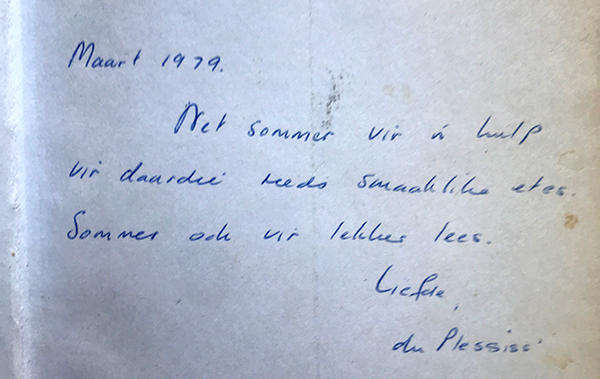 Maart 1979.
Net sommer vir 'n hulp
vir daardie reeds smaaklike etes.
Sommer ook vir lekker lees.
Liefde,
du Plessiss